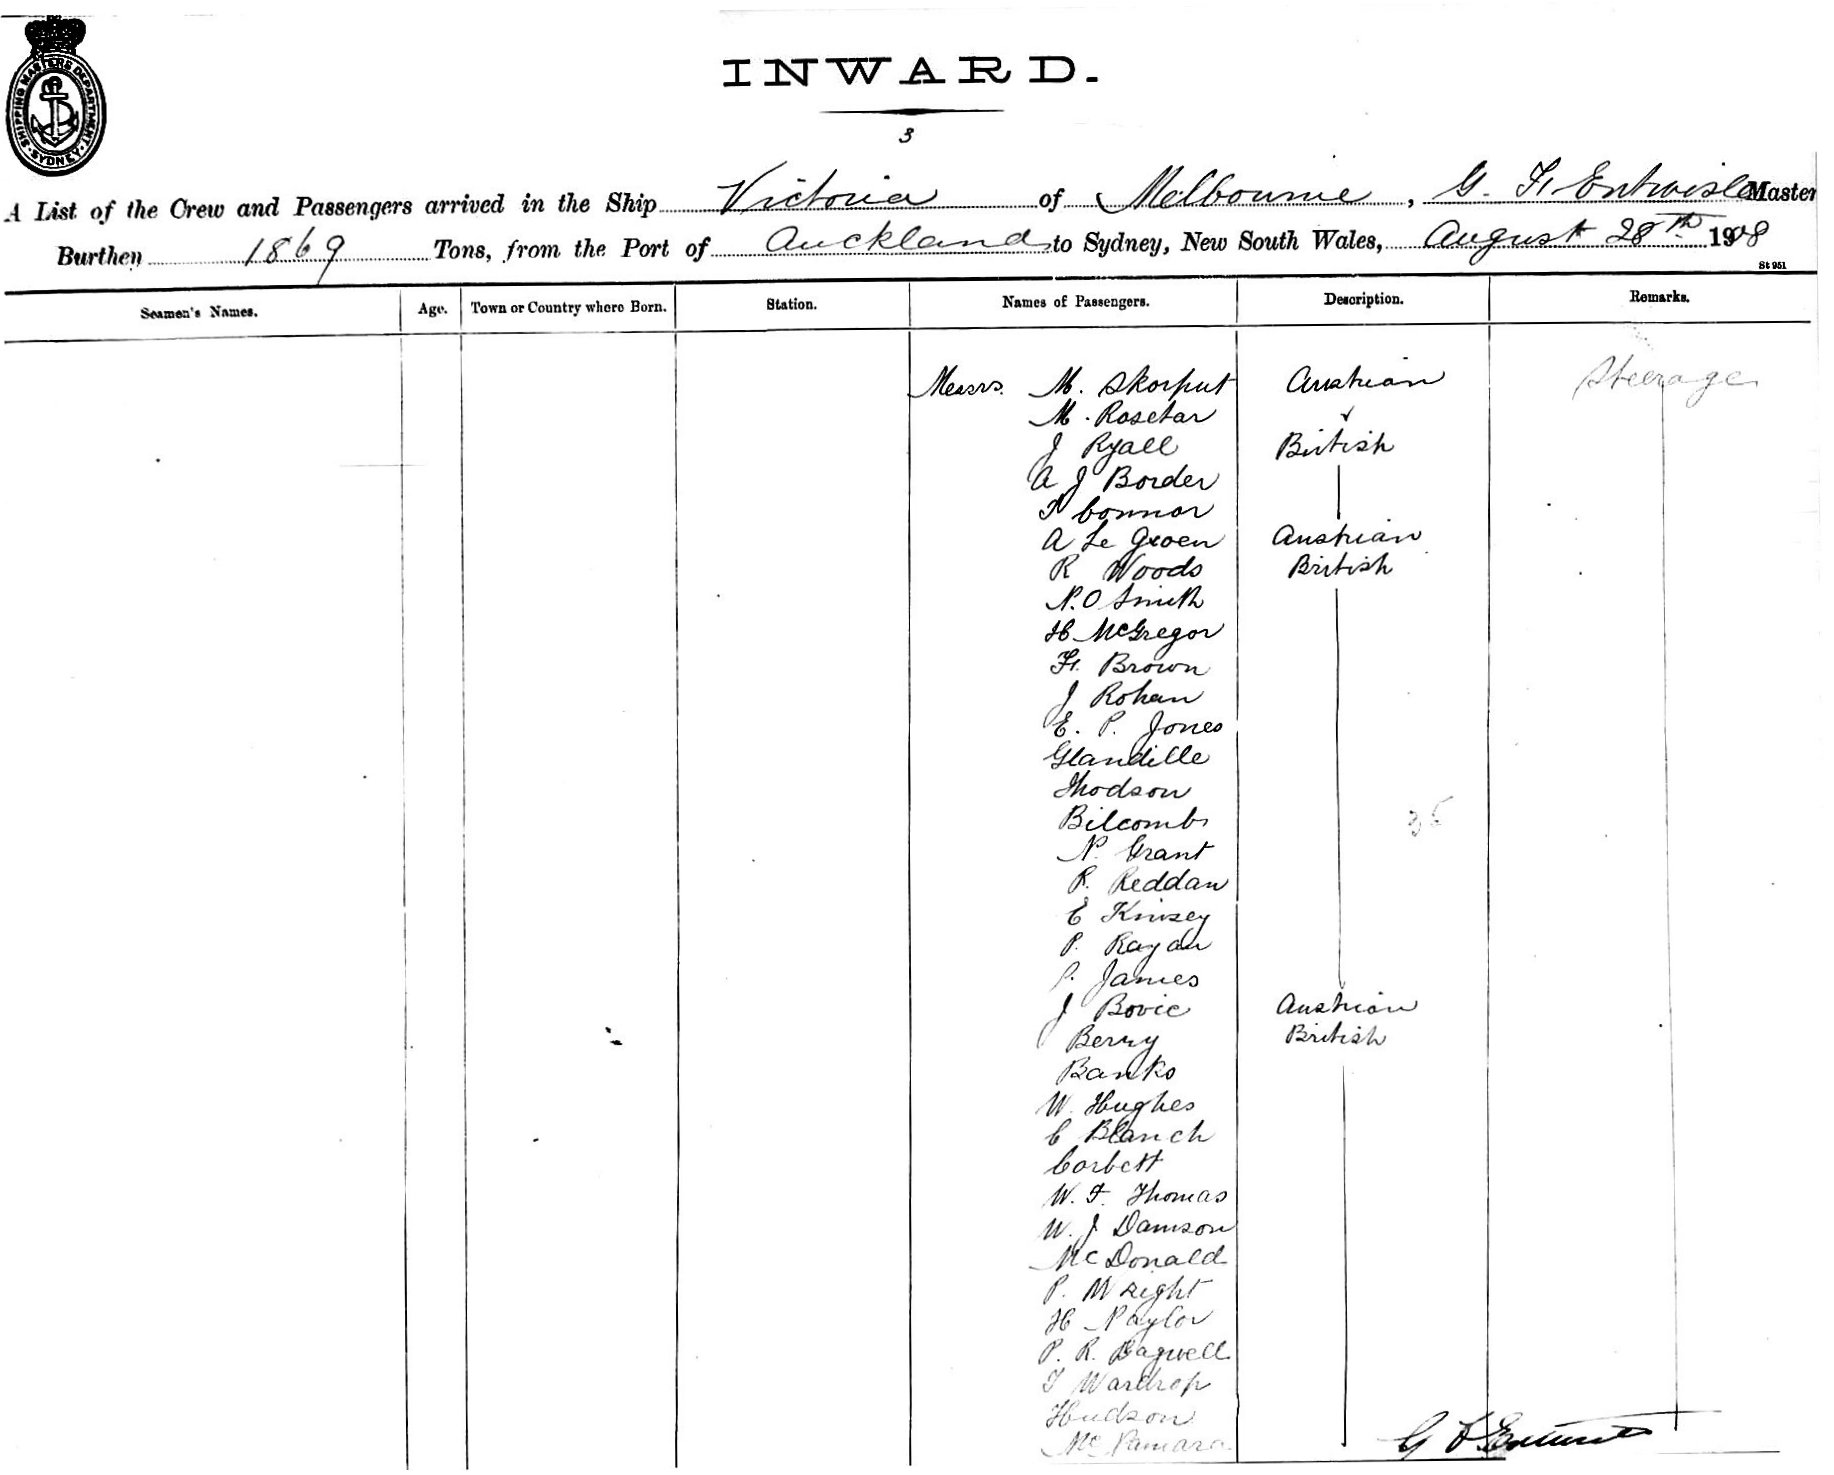 SHIPPING MASTERS DEPARTMENT SYDNEY
INWARD.
3
A List of the Crew and Passengers arrived in the Ship Victoria of Melbourne, G. F. Entwisle Master
Burthen 1869 Tons, from the Port of Auckland to Sydney, New South Wales, August 28th 1908
St 951
Seamen's Names. Age. Town or Country where Born. Station. Names of Passengers. Description. Remarks.
Messrs. M. Skorput Austrian Steerage
M. Rosetar
J Ryall British
A J Border
Connor
A Le Groen Austrian
R Woods British
N.O Smith
H McGregor
F. Brown
J Rohan
E. P. Jones
Glandille
Thodson
Bilcomb
N. Grant
R. Reddan
E Kinsey
P. Rayan
P. James
J Bovic Austrian
Berry British
Banks
W. Hughes
C Blanch
Corbett
W. F. Thomas
W. J Damson
McDonald
P. Wright
H Naylor
P. R. Bagwell
T Wardrop
Hudson
McNamara
G F Entwisle